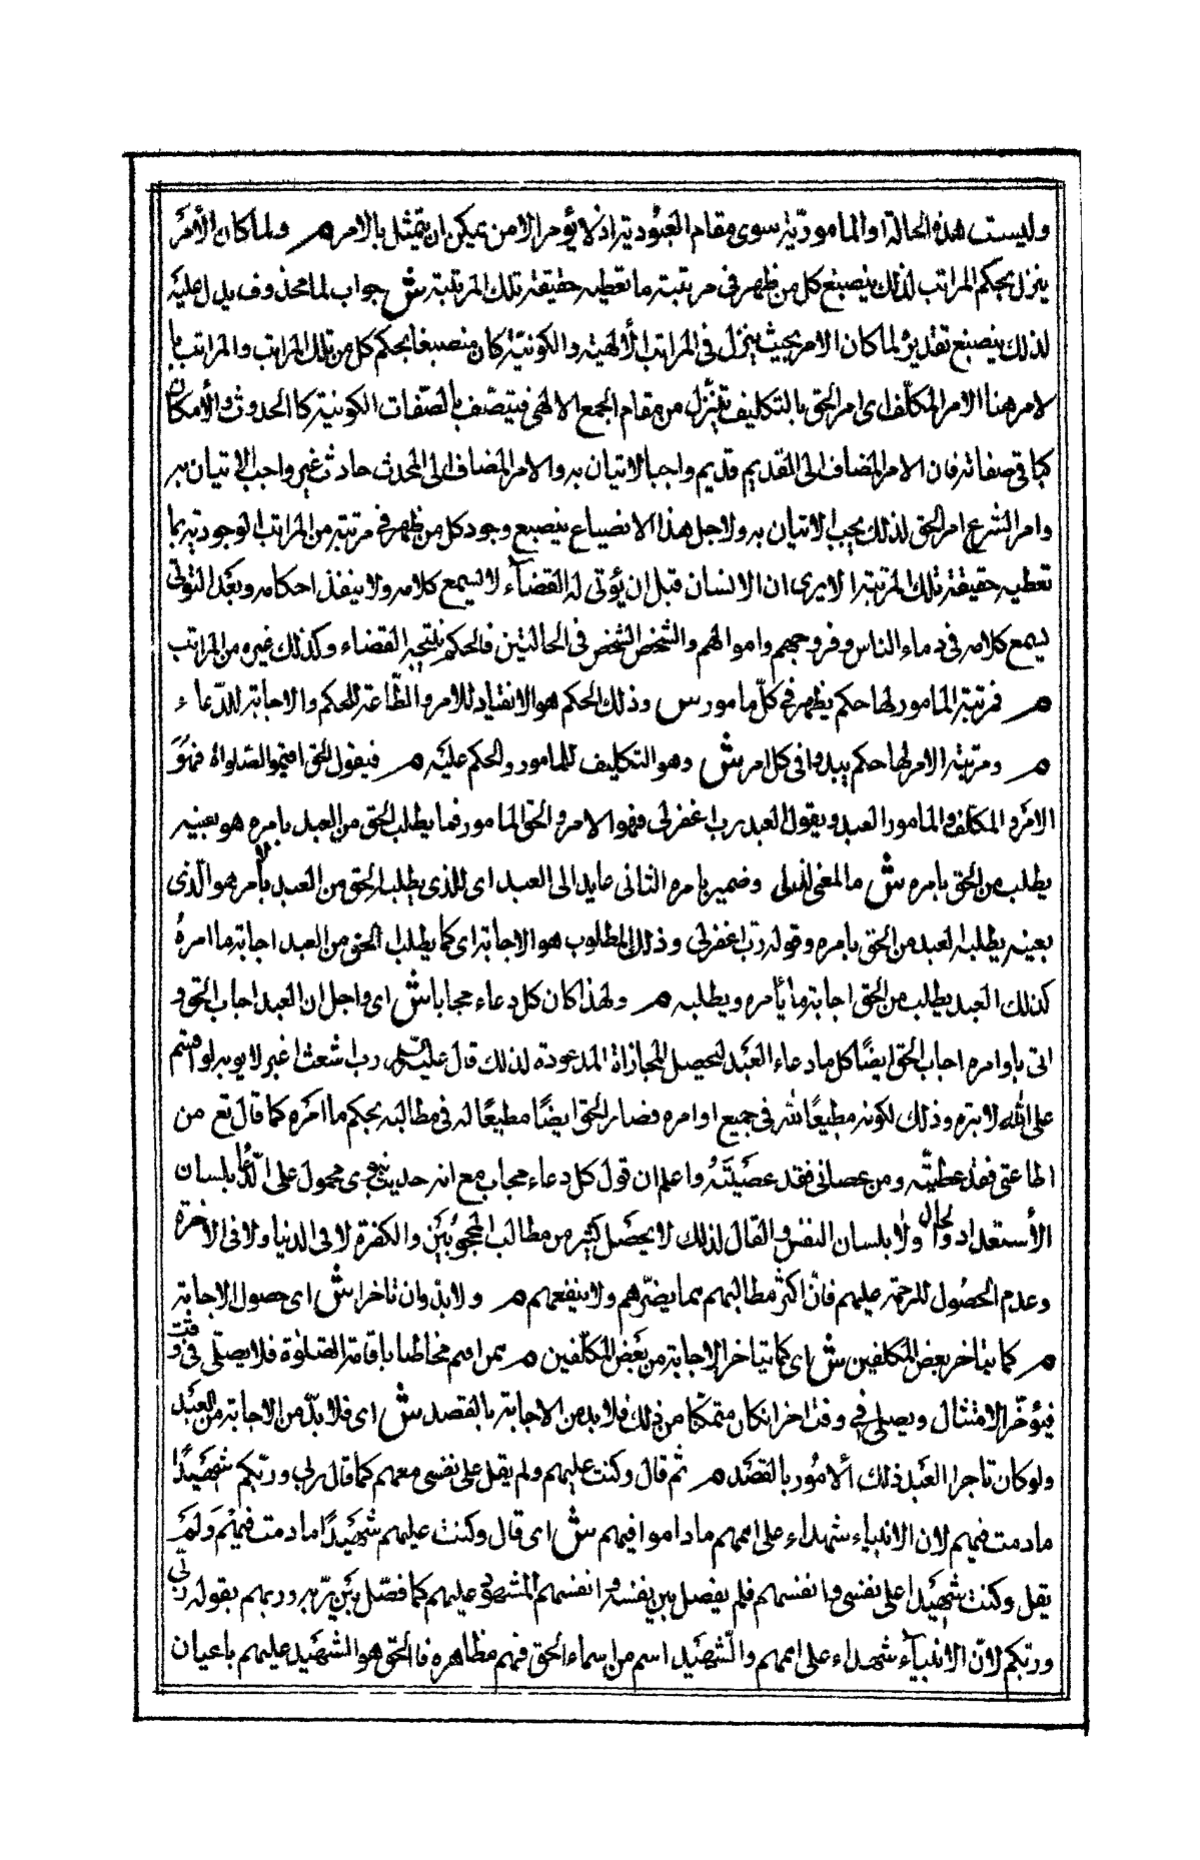 وليست هذه الحالة او المامورية سوى مقام العبودية اذ لا يؤمر الا من يمكن ان يتمثل بالامر م ولما كان الأمر
ينزل بحكم المراتب لذلك ينصبغ كل من ظهر فى مرتبة ما تعطيه حقيقة تلك المرتبة ش جواب لما محذوف يدل عليه
لذلك ينصبغ تقديره لما كان الامر بحيث ينزل فى المراتب الألهية والكونية كان منصبغا بحكم كل من تلك المراتب والمراتب با
لامر هنا الامر المكلف اى امر الحق بالتكليف تنزل من مقام الجمع الالهى فيتصف بالصفات الكونية كالحدوث والأمكان
كباقى صفاته فان الامر المضاف الى القديم قديم واجب الاتيان به والامر المضاف الى المحدث حادث غير واجب الاتيان به
وامر الشرع امر الحق لذلك يجب الاتيان به ولاجل هذا الانصباغ ينصبغ وجود كل من ظهر فى مرتبة من المراتب الوجودية بما
تعطيه حقيقة تلك المرتبة الا يرى ان الانسان قبل ان يؤتى له القضاء لا يسمع كلامه ولا ينفذ احكامه وبعد التولى
يسمع كلامه فى دماء الناس وفروجهم واموالهم والشخص الشخص فى الحالتين فالحكم نتيجة القضاء وكذلك غيره من المراتب
م فمرتبة المامور لها حكم يظهر فى كل مامور س وذلك الحكم هو الانقياد للامر والطاعة للحكم والاجابة للدعاء
م ومرتبة الامر لها حكم يبدوا فى كل امر ش وهو التكليف للمامور والحكم عليه م فيقول الحق اقيموا الصلواة فهو
الامر والمكلف والمامور العبد ويقول العبد رب اغفر لى فهو الامر والحق المامور فما يطلب الحق من العبد بامره هو بعينه
يطلب من الحق بامره ش ما لمعنى لذى وضمير بامره الثانى عايد الى العبد اى للذى يطلب الحق من العبد بأمره هو الذى
بعينه يطلبه العبد من الحق بامره وقوله رب اغفر لى وذلك المطلوب هو الاجابة اى كما يطلب الحق من العبد اجابة ما امره
كذلك العبد يطلب من الحق اجابة ما يأمره ويطلبه م ولهذا كان كل دعاء مجابا ش اى واجل ان العبد اجاب الحق و
اتى باوامره اجاب الحق ايضًا كل ما دعاء العبد لتحصل المجازاة المدعودة لذلك قال عليه السلم رب اشعث اغبر لا يوبه لو اقسم
على الله لابره وذلك لكونه مطيعًا لله فى جميع اوامره فصار الحق ايضًا مطيعًا له فى مطالبه بحكم ما امره كما قال تع من
اطاعنى فقد عطيته ومن عصانى فقد عصيته واعلم ان قول كل دعاء مجاب مع انه حديث نبوى محمول على الدعا بلسان
الأستعداد والحال ولا بلسان النفس والقال لذلك لا يحصل كثير من مطالب المحجوبين والكفرة لا فى الدنيا ولا فى الاخرة
وعدم الحصول للرحمة عليهم فان اكثر مطالبهم مما يضرهم ولا ينفعهم م ولا بد وان تاخر ش اى حصول الاجابة
م كما يتاخر بعض المكلفين ش اى كما يتاخر الاجابة من بعض المكلفين م ممن اقيم مخاطبا باقامة الصلوة فلا يصلى فى وقت
فيؤخر الامتثال ويصلى فى وقت اخر ان كان متمكنا من ذلك فلا بد من الاجابة بالقصد ش اى فلا بد من الاجابة من العبد
ولو كان تاجر العبد ذلك ألامور بالقصد م ثم قال وكنت عليهم ولم يقل على نفسى معهم كما قال ربى وربكم شهيدًا
ما دمت فيهم لان الانبياء شهداء على اممهم ما داموا فيهم ش اى قال وكنت عليهم شهيدًا ما دمت فيهم ولم
يقل وكنت شهيدا على نفسى وانفسهم فلم يفصل بين نفسه وانفسهم المشهود عليهم كما فصل بين ربه وربهم بقوله ربى
وربكم لان الانبياء شهداء على اممهم والشهيد اسم من اسماء الحق فهم مظاهره فالحق هو الشهيد عليهم باعيان